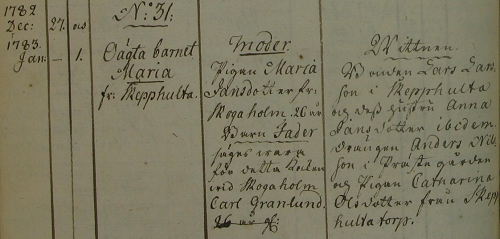 1782
Dec: 27. ois
1783.
Jan. — 1.
N:o 31:
Oägta barnet
Maria
fr: Skepphulta.
Moder.
Pigan Maria
Jansdotter fr:
Skogaholm. 26 år
Barn Fader
säges vara
för detta
vid Skogaholm
Carl Granlund.
26 år g:
Wittnen.
Bonden Lars Lars-
son i Skepphulta
och dess hustru Anna
Jansdotter ibidem.
Drängen Anders Nils-
son i Prästegården
och Pigan Catharina
Olsdotter från Skepp
hultatorp.